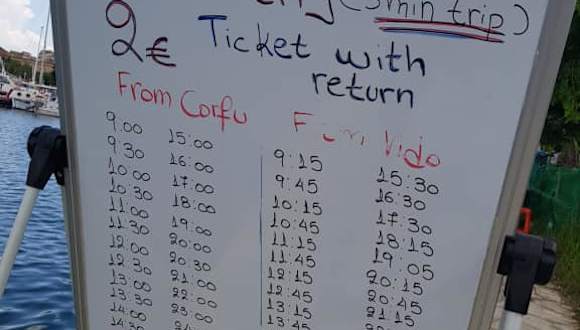 (5min trip)
2€ Ticket with
return
From Corfu From Vido
9.00 15:00 9:15 15:30
9.30 16:00 9:45 16:30
10.00 17:00 10:15 17:30
10.30 18:00 10:45 18:15
11.00 19:00 11:15 19:05
11.30 20:00 11:45 20:15
12.00 20:30 12:15 20:45
12.30 21:00 12:45 21:15
13.00 22:00 13:15
13.30 23:00 13:45
14.00
14:30